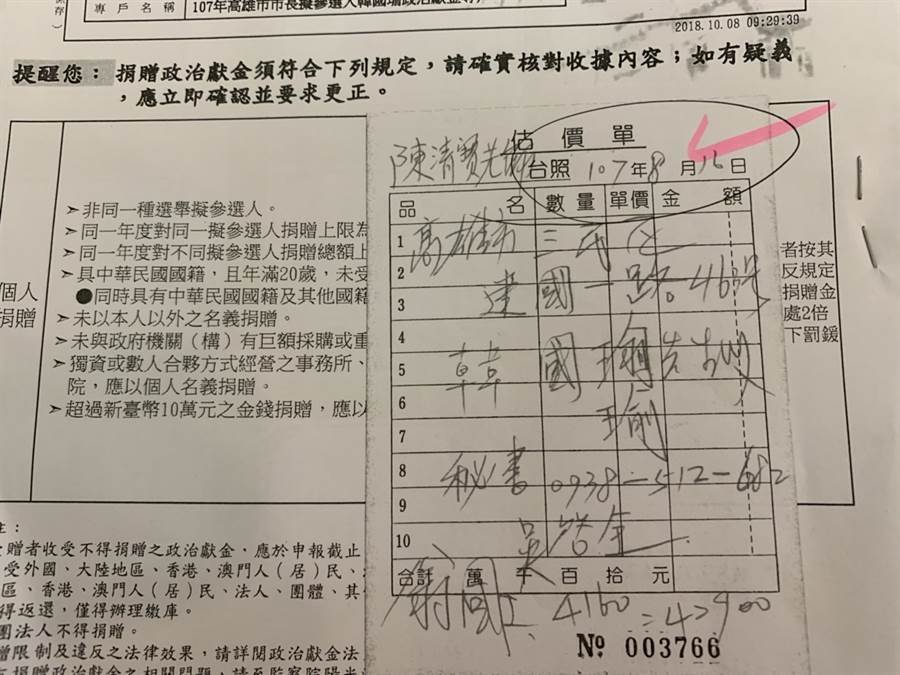 專戶名稱
107年高雄市市長擬參選人韓國瑜政治獻金專戶
2018.10.08 09:29:39
提醒您：捐贈政治獻金須符合下列規定，請確實核對收據內容；如有疑義
，應立即確認並要求更正。
個人
捐贈
➢非同一種選舉擬參選人。
➢同一年度對同一擬參選人捐贈上限為
➢同一年度對不同擬參選人捐贈總額上
➢具中華民國國籍，且年滿20歲，未受
●同時具有中華民國國籍及其他國籍
➢未以本人以外之名義捐贈。
➢未與政府機關（構）有巨額採購或重
➢獨資或數人合夥方式經營之事務所、
院，應以個人名義捐贈。
➢超過新臺幣10萬元之金錢捐贈，應以
者按其
反規定
捐贈金
處2倍
下罰鍰
估價單
陳清寶先生 台照 107年8月16日
品名 數量 單價 金額
1 高雄市三民區
2
3 建國一路465號
4
5 韓國瑜先生收
6
7 瑜
8 秘書 0938-512-682
9
10
合計 萬 千 百 拾 元
4160 = 42900
№ 003766
註：
贈者收受不得捐贈之政治獻金，應於申報截止
受外國、大陸地區、香港、澳門人（居）民、
區、香港、澳門人（居）民、法人、團體、其
得返還，僅得辦理繳庫。
團法人不得捐贈。
贈限制及違反之法律效果，請詳閱政治獻金法
捐贈政治獻金之相關問題，請至監察院陽光